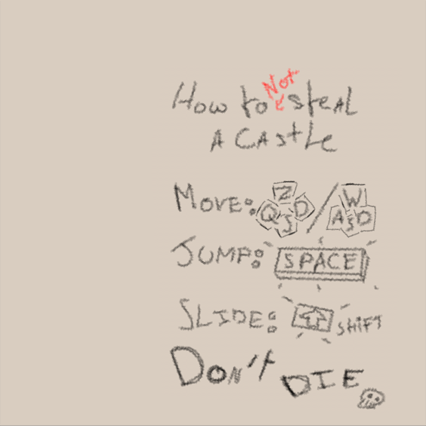 How to Not steal
A Castle
Move: Z Q S D / W A S D
JUMP: SPACE
SLIDE: SHIFT
DON't DIE